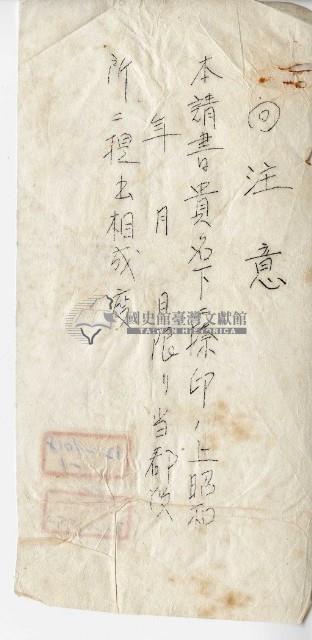 ◎注意
本請書貴名下ニ捺印ノ上昭和
年 月 日限リ当郡役
所ニ提出相成度
國史館臺灣文獻館
TAIWAN HISTORICA